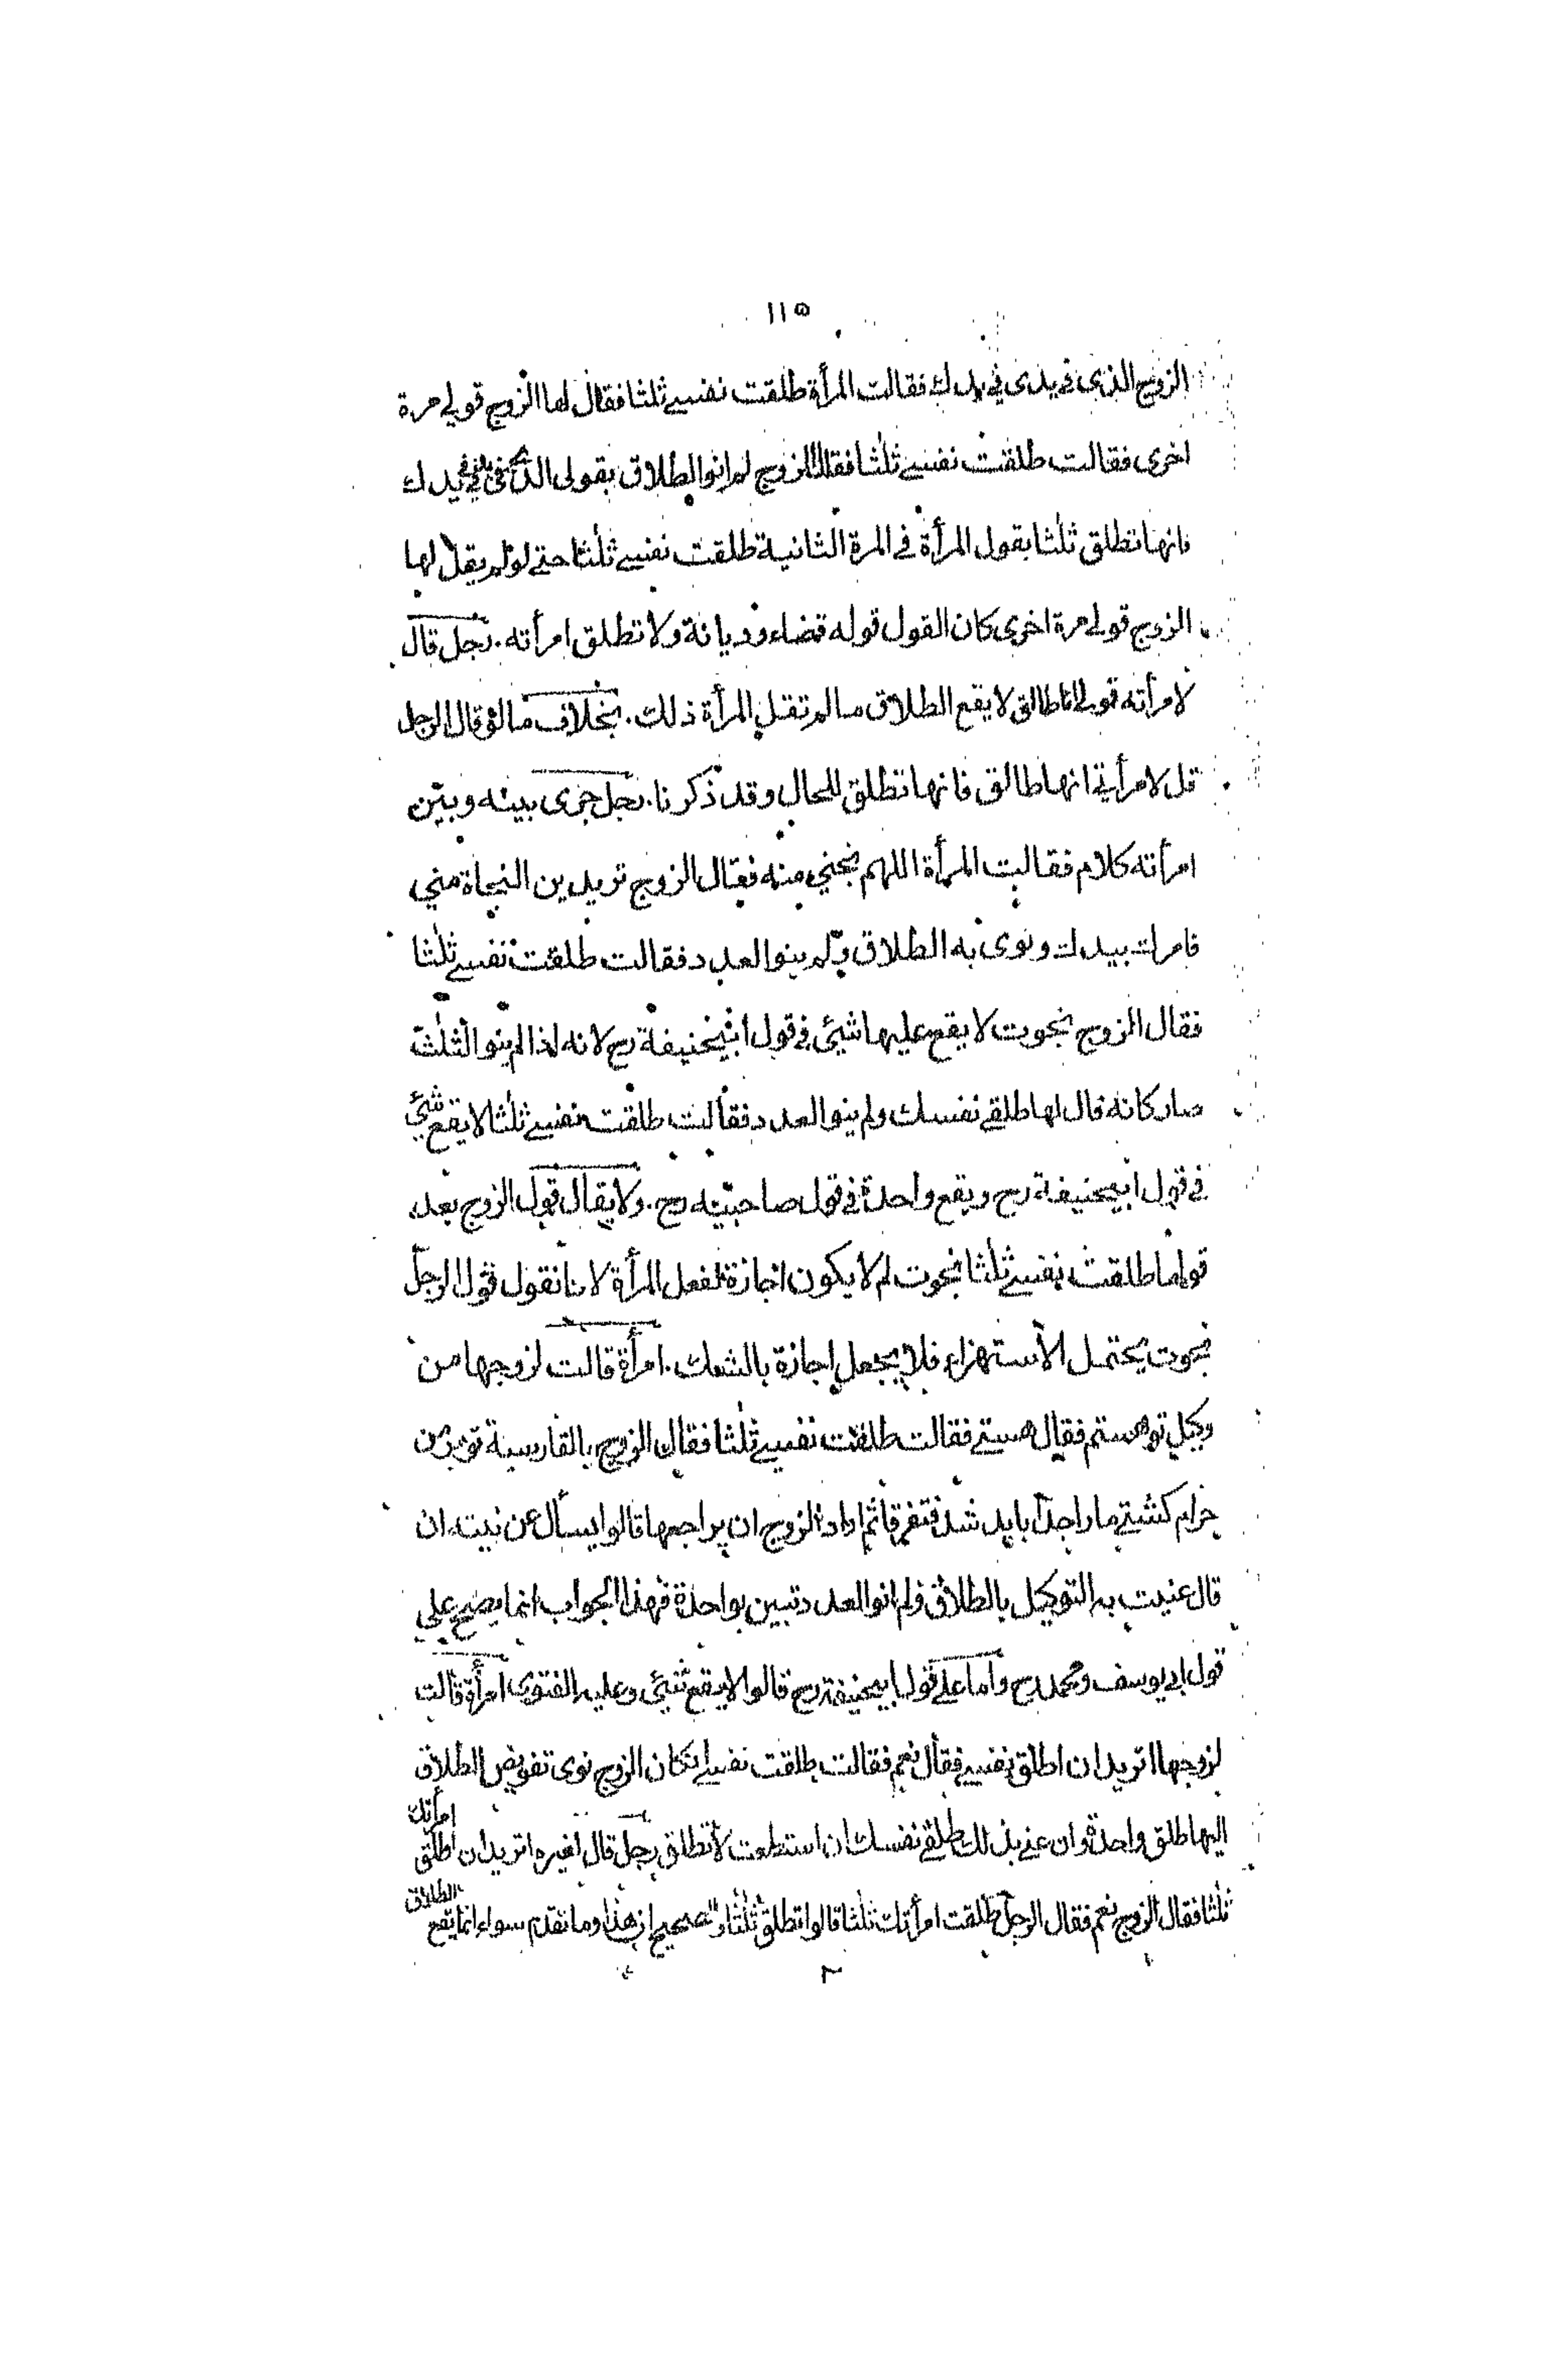 ١١٥
الزوج الذى في يدى في يدك فقالت المرأة طلقت نفسي ثلثا فقال لها الزوج قولي مرة
اخرى فقالت طلقت نفسي ثلثا فقال الزوج لم انوا الطلاق بقولى الذى في يدى في يدك
فانها تطلق ثلثا بقول المرأة في المرة الثانية طلقت نفسي ثلثا حتى لو لم يقل لها
الزوج قولي مرة اخرى كان القول قوله قضاء وديانة ولا تطلق امرأته. رجل قال
لامرأته قولي انا طالق لا يقع الطلاق ما لم تقل المرأة ذلك. بخلاف ما لو قال الرجل
قل لامرأتي انها طالق فانها تطلق للحال وقد ذكرنا. رجل جرى بينه وبين
امرأته كلام فقالت المرأة اللهم نجني منه فقال الزوج تريدين النجاة مني
فامرك بيدك ونوى به الطلاق ولم ينوا العدد فقالت طلقت نفسي ثلثا
فقال الزوج نجوت لا يقع عليها شيئ في قول ابيحنيفة رح لانه اذا لم ينوا الثلث
صار كانه قال لها طلقي نفسك ولم ينوا العدد فقالت طلقت نفسي ثلثا لا يقع شيئ
في قول ابيحنيفة رح ويقع واحدة في قول صاحبيه رح. ولا يقال قول الزوج بعد
قولها طلقت نفسي ثلثا نجوت لم لا يكون اجازة لفعل المرأة لانا نقول قول الرجل
نجوت يحتمل الاستهزاء فلا يجعل اجازة بالشك. امرأة قالت لزوجها من
وكيل تو هستم فقال هستي فقالت طلقت نفسي ثلثا فقال الزوج بالفارسية تو بر من
حرام كشتي مارا جدا بايد شد فتفرقا ثم اراد الزوج ان يراجعها قالوا يسأل عن نيته ان
قال عنيت به التوكيل بالطلاق ولم انوا العدد تبين بواحدة فهذا الجواب انما يصح على
قول ابي يوسف ومحمد رح واما على قول ابيحنيفة رح قالوا لا يقع شيئ وعليه الفتوى امرأة قالت
لزوجها اتريد ان اطلق نفسي فقال نعم فقالت طلقت نفسي ان كان الزوج نوى تفويض الطلاق
اليها طلق واحدة وان عني بذلك طلقي نفسك ان استطعت لا تطلق رجل قال لغيره اتريد ان اطلق امرأتك
ثلثا فقال الزوج نعم فقال الرجل طلقت امرأتك ثلثا قالوا تطلق ثلثا والصحيح ان هذا وما تقدم سواء انما يقع الطلاق